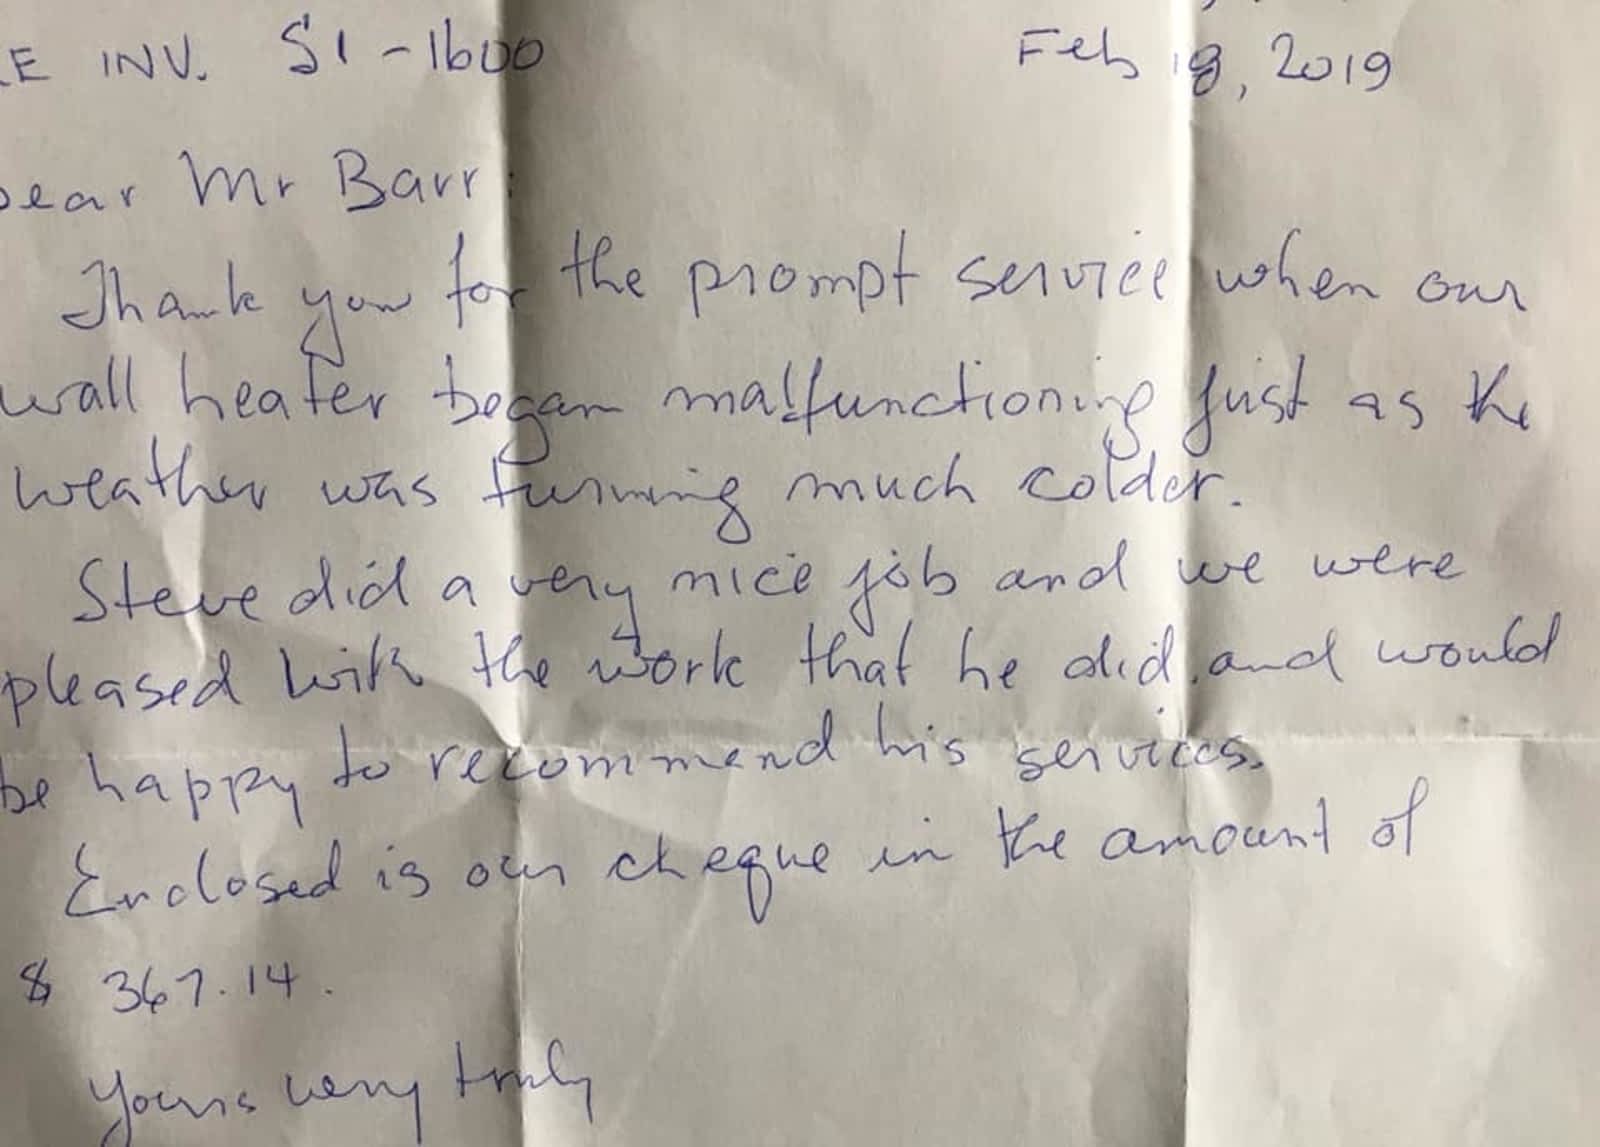 RE INV. SI-1600 Feb 18, 2019
Dear Mr Barr:
Thank you for the prompt service when our
wall heater began malfunctioning just as the
weather was turning much colder.
Steve did a very nice job and we were
pleased with the work that he did, and would
be happy to recommend his services.
Enclosed is our cheque in the amount of
$ 367.14.
Yours very truly